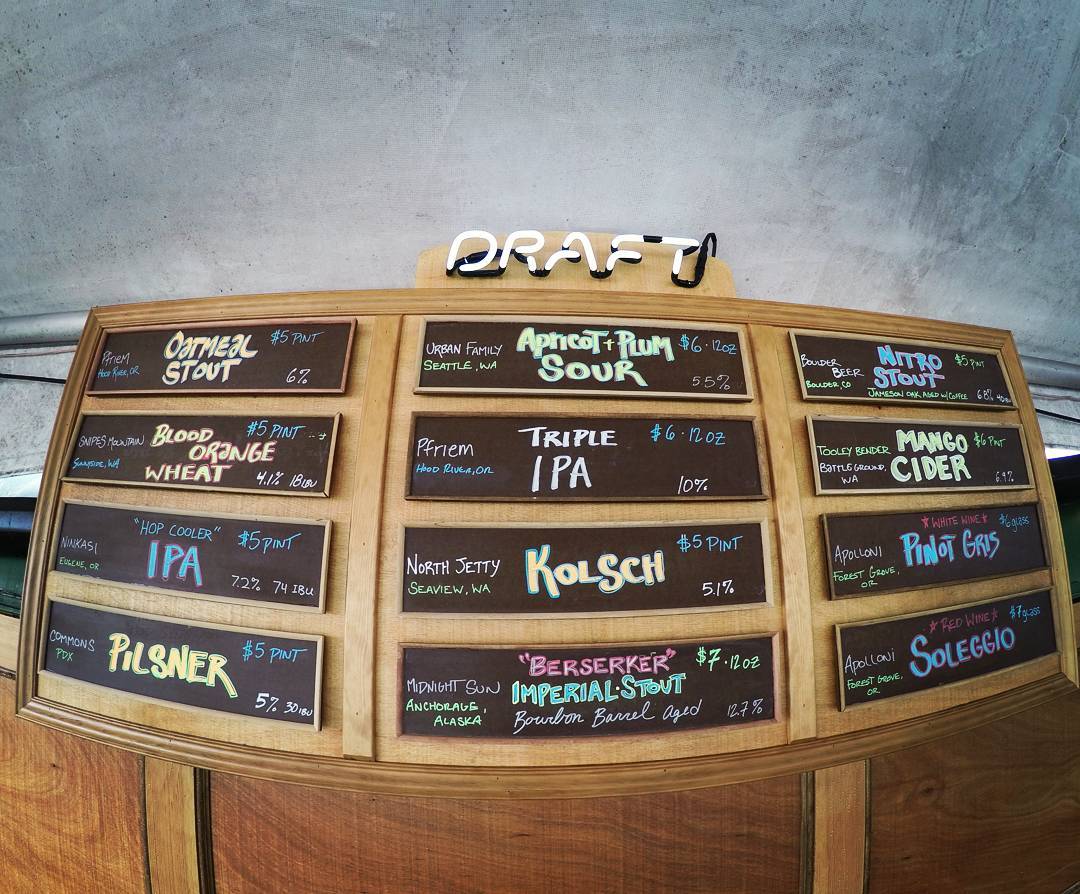 DRAFT
Pfriem
Hood River, OR
Oatmeal
Stout
$5 Pint
6%
Snipes Mountain
Sunnyside, WA
Blood
Orange
Wheat
$5 Pint
4.1% 18 IBU
Ninkasi
Eugene, OR
"Hop Cooler"
IPA
$5 Pint
7.2% 74 IBU
Commons
PDX
Pilsner
$5 Pint
5% 30 IBU
Urban Family
Seattle, WA
Apricot + Plum
Sour
$6 · 12oz
5.5%
Pfriem
Hood River, OR
Triple
IPA
$6 · 12oz
10%
North Jetty
Seaview, WA
Kolsch
$5 Pint
5.1%
Midnight Sun
Anchorage,
Alaska
"Berserker"
Imperial Stout
Bourbon Barrel Aged
$7 · 12oz
12.7%
Boulder
Beer
Boulder, CO
Nitro
Stout
$5 Pint
Jameson Oak Aged w/ Coffee
6.8% 40 IBU
Tooley Bender
Battle Ground,
WA
Mango
Cider
$6 Pint
6.9%
Apolloni
Forest Grove,
OR
*White Wine*
Pinot Gris
$6 glass
Apolloni
Forest Grove,
OR
*Red Wine*
Soleggio
$7 glass